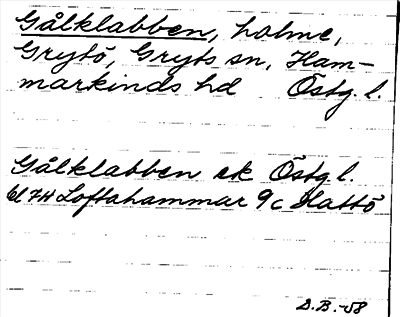 Gålklabben, holme,
Grytö, Gryts sn, Ham-
markinds hd Östg. l.
Gålklabben ek Östg l.
6l 7H Loftahammar 9c Hattö
D.B. -58